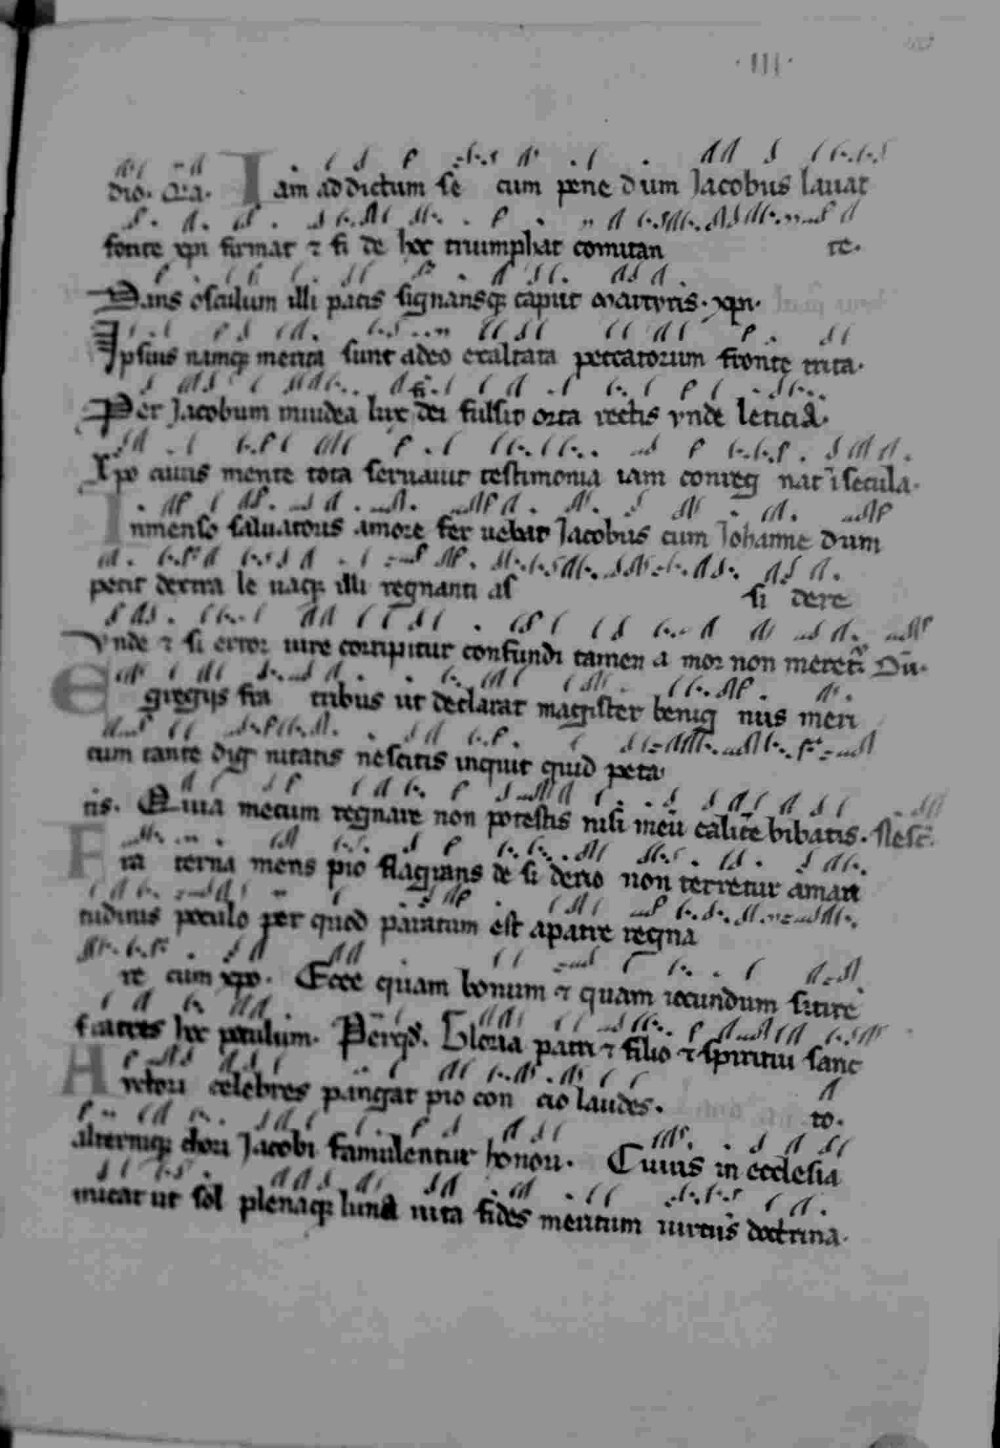 ·III·
dio. Qia. Iam ad dictum se cum pene dum Jacobus lauat
fonte xpi firmat ⁊ fi de hoc triumphat comitan te.
Dans osculum illi pacis signansq; caput martyris. xpi.
Ipsius namq; merita sunt adeo exaltata peccatorum fronte trita.
Per Jacobum in iudea lux dei fulsit orta rectis vnde leticia.
Xpo cuius mente tota seruauit testimonia iam conreg nat ī secula.
Inmenso saluatoris amore fer uebat Jacobus cum Johanne dum
petit dextra le uaq; illi regnanti as si dere
Vnde ⁊ si error iure corripitur confundi tamen a mor non meret᷑. Dū.
Egregijs fra tribus ut declarat magister benig nus meri
tum tante dig nitatis nescitis inquit quid peta
tis. Quia mecum regnare non potestis nisi meū calicē bibatis. Nesc̄.
Fra terna mens pio flagrans de si derio non terretur amari
tudinis poculo per quod paratum est apatre regna
re cum xpo. Ecce quam bonum ⁊ quam iocundum sitire
fratres hoc poculum. Perqd̄. Gloria patri ⁊ filio ⁊ spiritui sanc
to.
A celebres pangat pio con cio laudes.
alterniq; chori Jacobi famulentur honori. Cuius in ecclesia
micat ut sol plenaq; luna uita fides meritum uirtus doctrina.